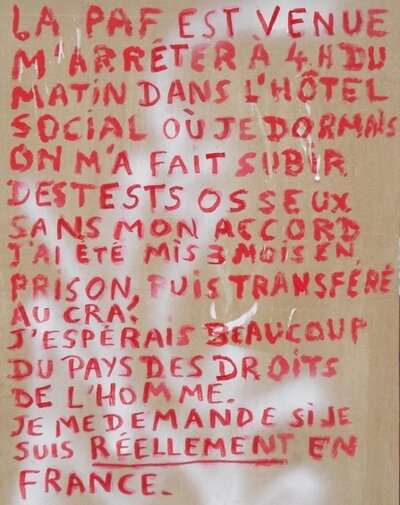 LA PAF EST VENUE
M'ARRÊTER À 4H DU
MATIN DANS L'HÔTEL
SOCIAL OÙ JE DORMAIS
ON M'A FAIT SUBIR
DES TESTS OSSEUX
SANS MON ACCORD
J'AI ÉTÉ MIS 3 MOIS EN
PRISON, PUIS TRANSFÉRÉ
AU CRA.
J'ESPÉRAIS BEAUCOUP
DU PAYS DES DROITS
DE L'HOMME.
JE ME DEMANDE SI JE
SUIS RÉELLEMENT EN
FRANCE.